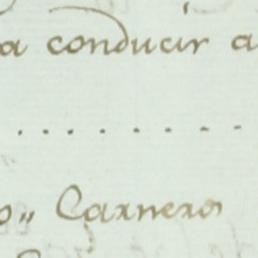 a conducir a
..........
o,, Carneros